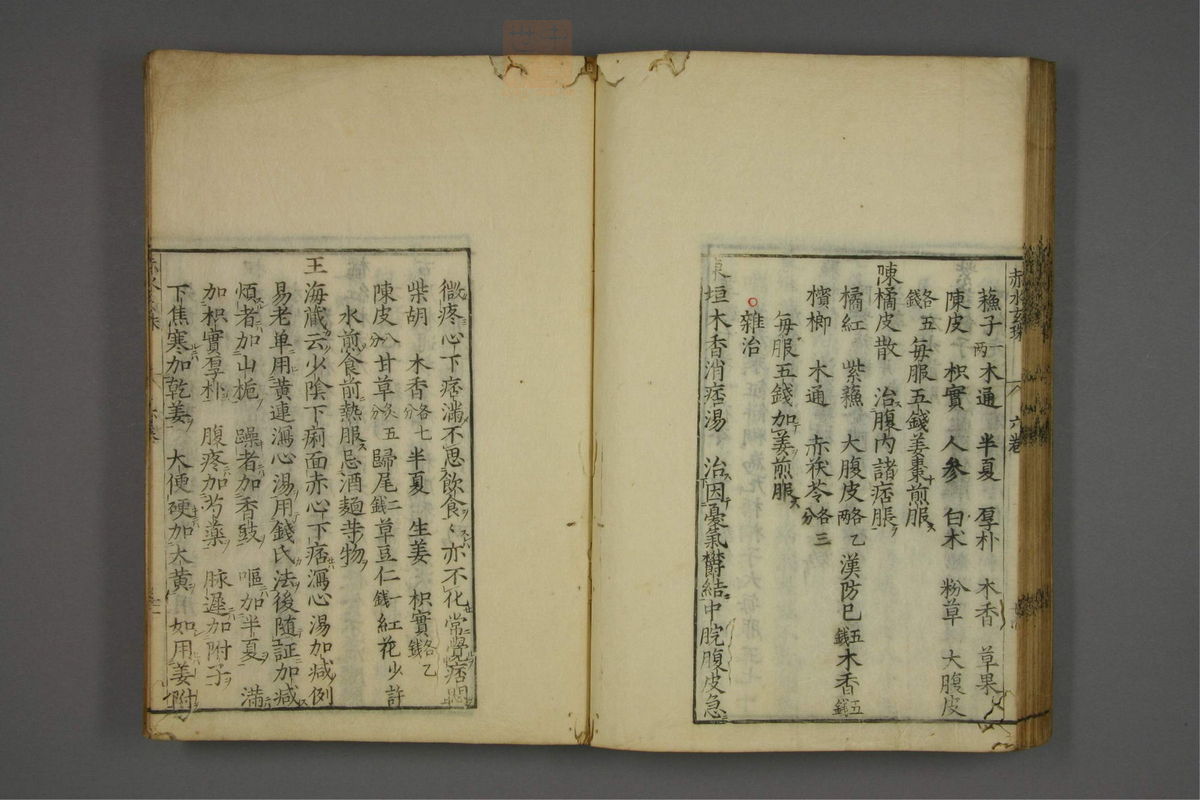 赤水玄珠 六卷
蘓子一兩 木通 半夏 厚朴 木香 草果
陳皮 枳實 人參 白朮 粉草 大腹皮
各五錢 每服五錢姜棗煎服
陳橘皮散 治腹內諸痞脹
橘紅 紫蘓 大腹皮各乙兩 漢防已五錢 木香五錢
檳榔 木通 赤茯苓各三分
每服五錢加姜煎服
雜治
東垣木香消痞湯 治因憂氣欝結中脘腹皮急
微疼心下痞滿不思飲食〻亦不化常覺痞悶
柴胡 木香各七分 半夏 生姜 枳實各乙錢
陳皮八分 甘草炙五分 歸尾二錢 草豆仁一錢 紅花少許
水煎食前熱服忌酒麵等物
王海藏云少陰下痢面赤心下痞瀉心湯加減例
易老單用黃連瀉心湯用錢氏法後隨証加減
煩者加山梔 躁者加香豉 嘔加半夏 滿
加枳實厚朴 腹疼加芍藥 脉遲加附子
下焦寒加乾姜 大便硬加大黃 如用姜附